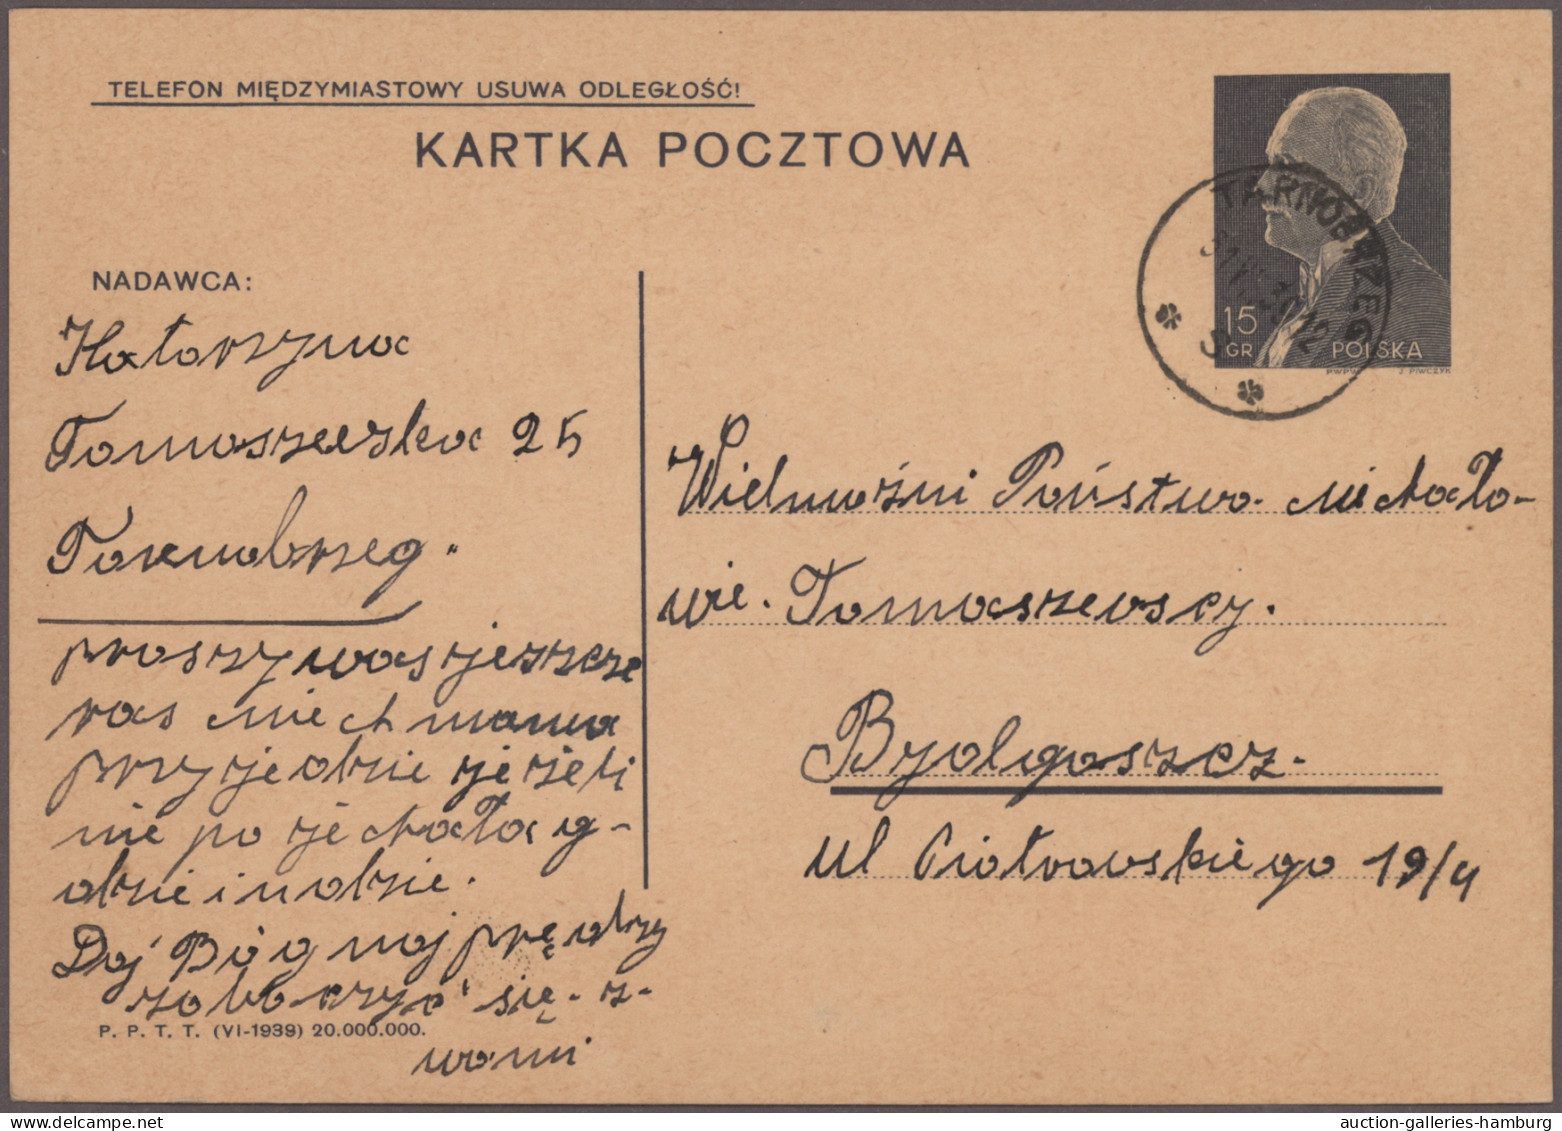 TELEFON MIĘDZYMIASTOWY USUWA ODLEGŁOŚĆ!
KARTKA POCZTOWA
TARNOBRZEG
3
15
GR
POLSKA
PWPW
J. PIWCZYK
NADAWCA:
Katarzyna
Tomaszewska 25
Tarnobrzeg.
proszy was jeszcze
ras niech mama
przyjedzie jeżeli
nie pojechała g-
dzieindzie.
Daj Bóg najprędzy
zobaczyć się z-
wami
P. P. T. T. (VI-1939) 20.000.000.
Wielmożni Państwo Michało-
wie. Tomaszewscy.
Bydgoszcz.
ul Piotrowskiego 19/4
auction-galleries-hamburg